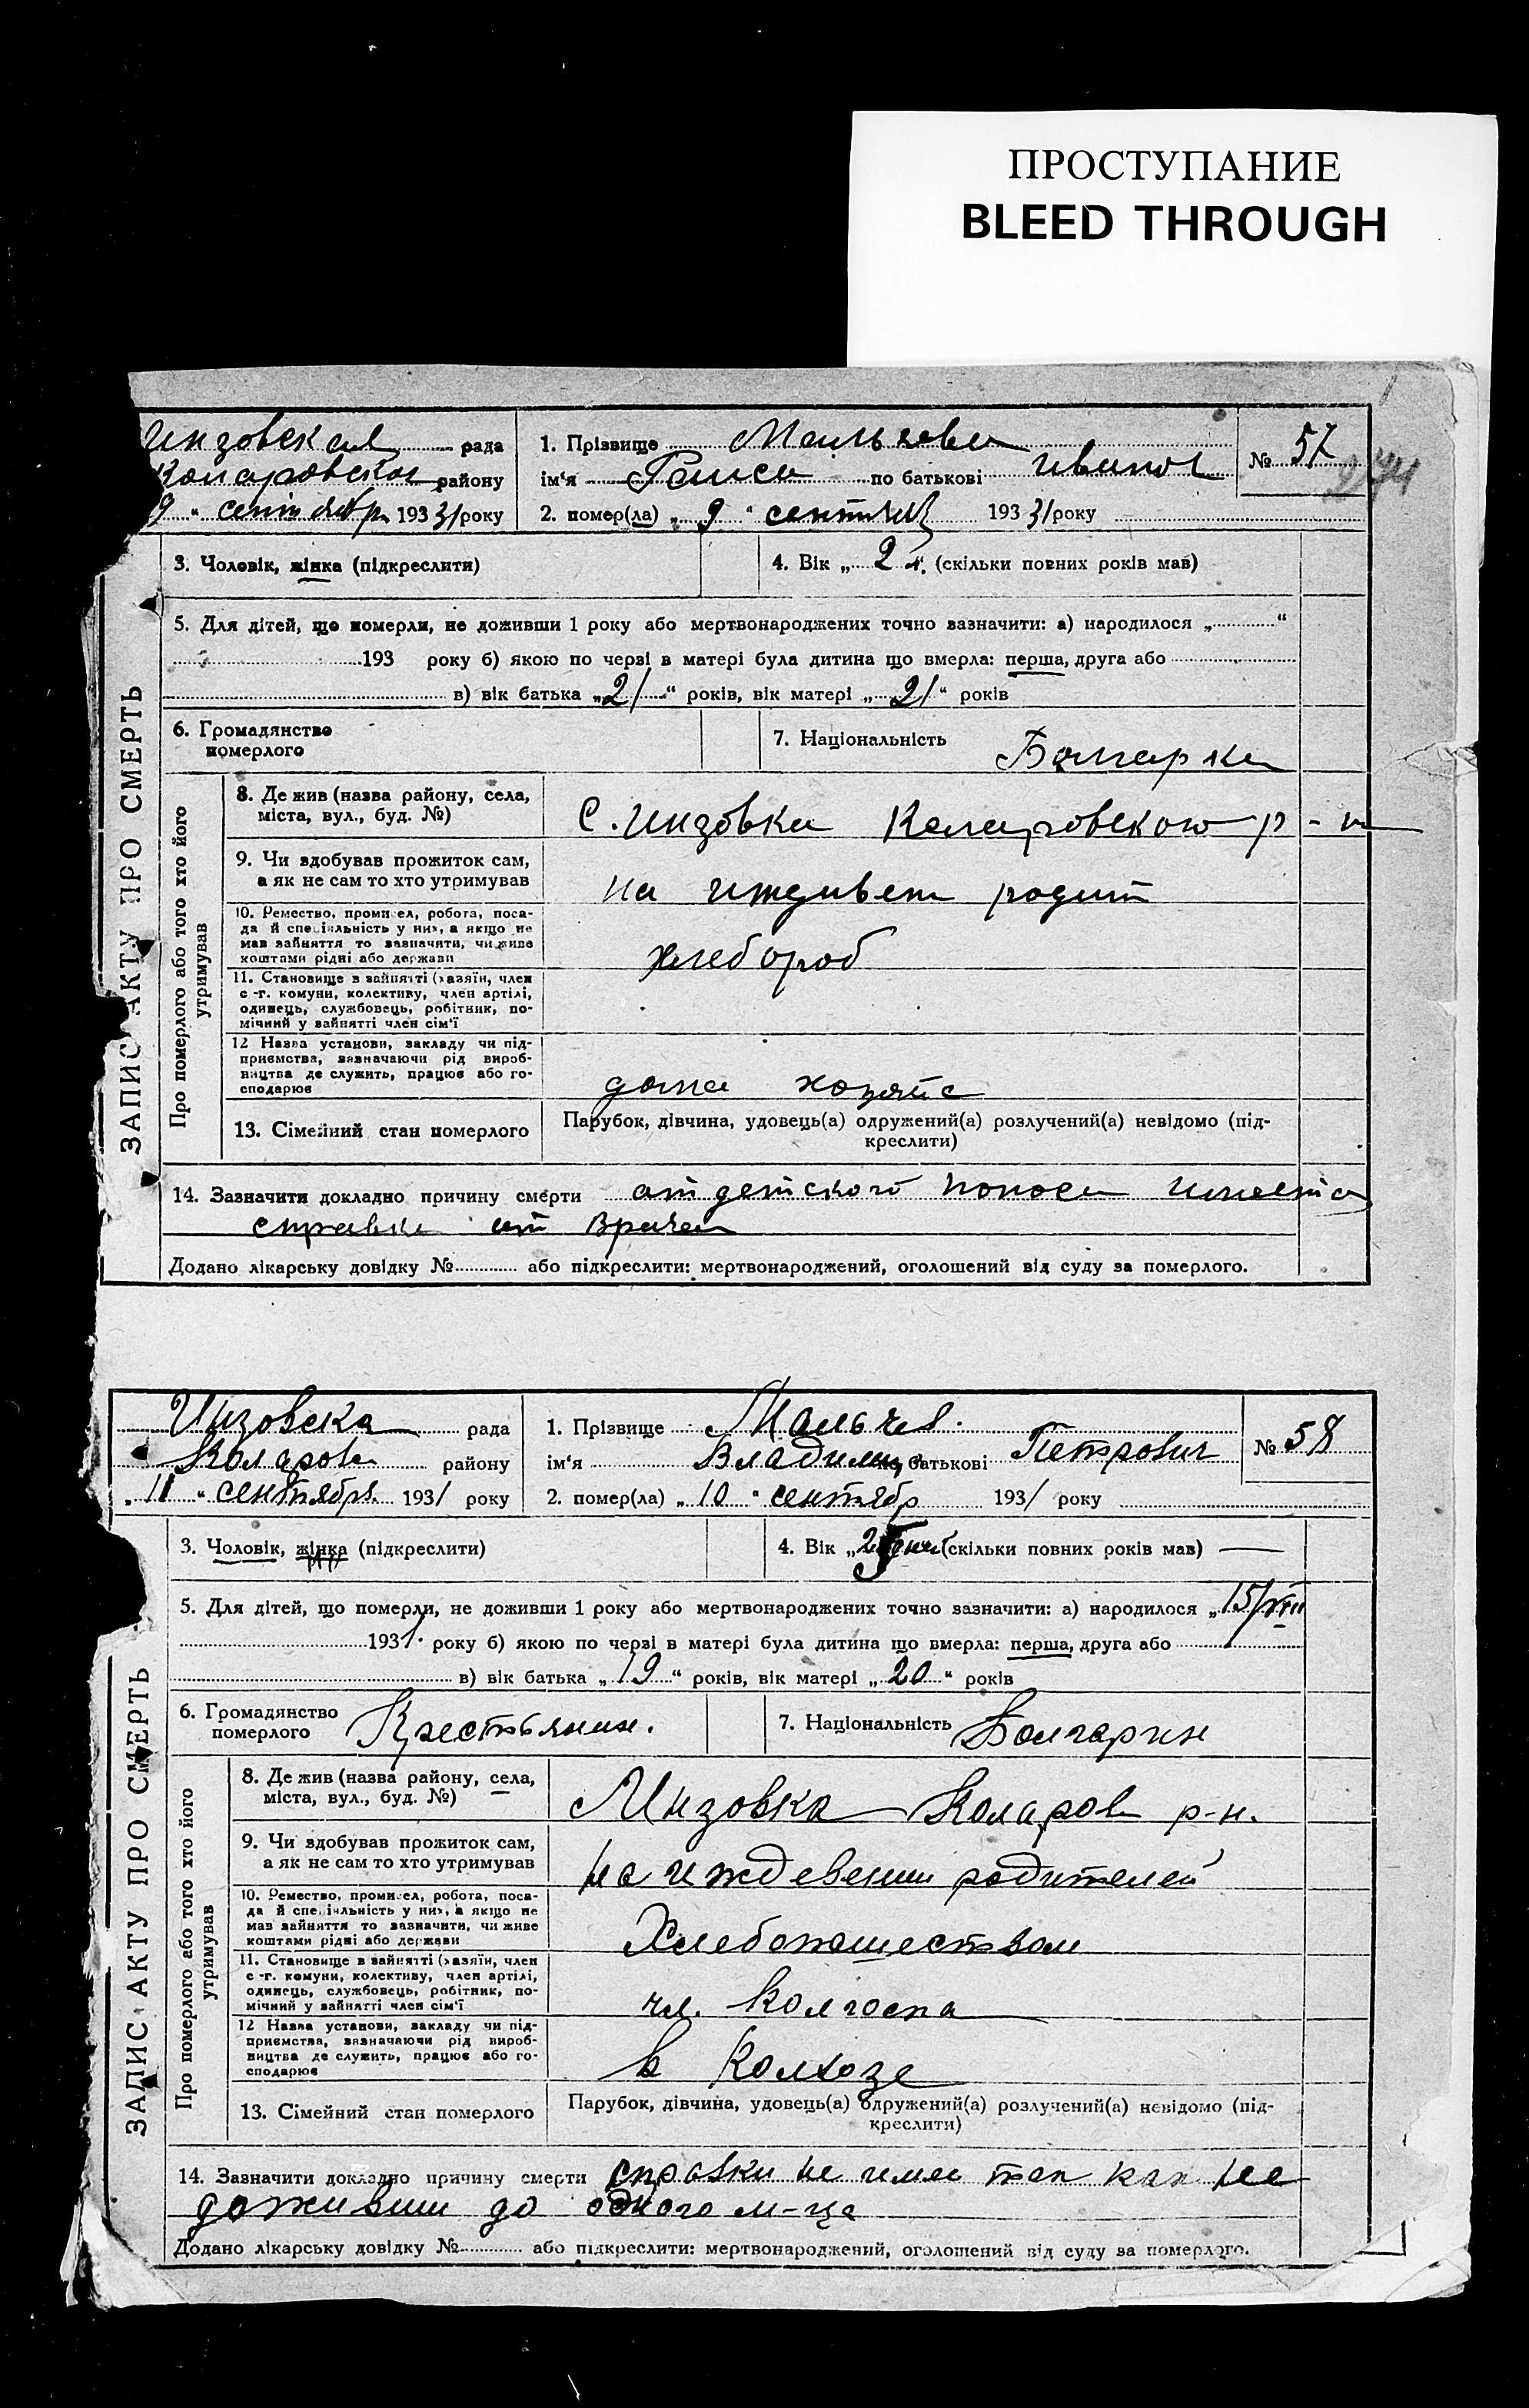 ПРОСТУПАНИЕ
BLEED THROUGH
Инзовская рада
Коларовского району
9 " сентября 1931 року
1. Прізвище Мальчева
№ 57
ім'я Раиса по батькові Иванов
2. помер(ла) „ 9 " сентяб 1931 року
3. Чоловік, жінка (підкреслити)
4. Вік „ 2 (скільки повних років мав)
5. Для дітей, що померли, не доживши 1 року або мертвонароджених точно зазначити: а) народилося „ "
193 року б) якою по черві в матері була дитина що вмерла: перша, друга або
в) вік батька „ 21 " років, вік матері „ 21 " років
6. Громадянство
померлого
7. Національність Болгарка
ЗАПИС АКТУ ПРО СМЕРТЬ
Про померлого або того хто його
утримував
8. Де жив (назва району, села,
міста, вул., буд. №)
С. Инзовка Коларовского р-н
9. Чи здобував прожиток сам,
а як не сам то хто утримував
на иждивен родит
10. Ремество, промисел, робота, поса-
да й спеціяльність у них, а якщо не
мав зайняття то зазначити, чи живе
коштами рідні або держави
хлебороб
11. Становище в зайнятті (хазяїн, член
с-г. комуни, колективу, член артілі,
одинець, службовець, робітник, по-
мічний у зайнятті член сім'ї
12 Назва установи, закладу чи під-
приємства, зазначаючи рід вироб-
ництва де служить, працює або го-
сподарює
дома хозяйс
13. Сімейний стан померлого
Парубок, дівчина, удовець(а) одружений(а) розлучений(а) невідомо (під-
креслити)
14. Зазначити докладно причину смерти от детского поноса имеется
справка от врача
Додано лікарську довідку № або підкреслити: мертвонароджений, оголошений від суду за померлого.
Инзовска рада
Коларов району
„ 11 " сентября 1931 року
1. Прізвище Мальчев.
№ 58
ім'я Владимир по батькові Петрович
2. помер(ла) „ 10 " сентябр 1931 року
3. Чоловік, жінка (підкреслити)
4. Вік „ (скільки повних років мав) —
5. Для дітей, що померли, не доживши 1 року або мертвонароджених точно зазначити: а) народилося „ 15/VIII
1931. року б) якою по черзі в матері була дитина що вмерла: перша, друга або
в) вік батька „ 19 " років, вік матері „ 20 " років
6. Громадянство
померлого Крестьянин.
7. Національність Болгарин
ЗАПИС АКТУ ПРО СМЕРТЬ
Про померлого або того хто його
утримував
8. Де жив (назва району, села,
міста, вул., буд. №)
Инзовка Коларов р-н.
9. Чи здобував прожиток сам,
а як не сам то хто утримував
на иждевении родителей
10. Ремество, промисел, робота, поса-
да й спеціяльність у них, а якщо не
мав зайняття то зазначити, чи живе
коштами рідні або держави
Хлебопашеством
11. Становище в зайнятті (хазяїн, член
с-г. комуни, колективу, член артілі,
одинець, службовець, робітник, по-
мічний у зайнятті член сім'ї
чл. Колгоспа
12 Назва установи, закладу чи під-
приємства, зазначаючи рід вироб-
ництва де служить, працює або го-
сподарює
в Колхозе
13. Сімейний стан померлого
Парубок, дівчина, удовець(а) одружений(а) розлучений(а) невідомо (під-
креслити)
14. Зазначити докладно причину смерти справки не имее так как не
доживши до одного м-ца
Додано лікарську довідку № або підкреслити: мертвонароджений, оголошений від суду за померлого.